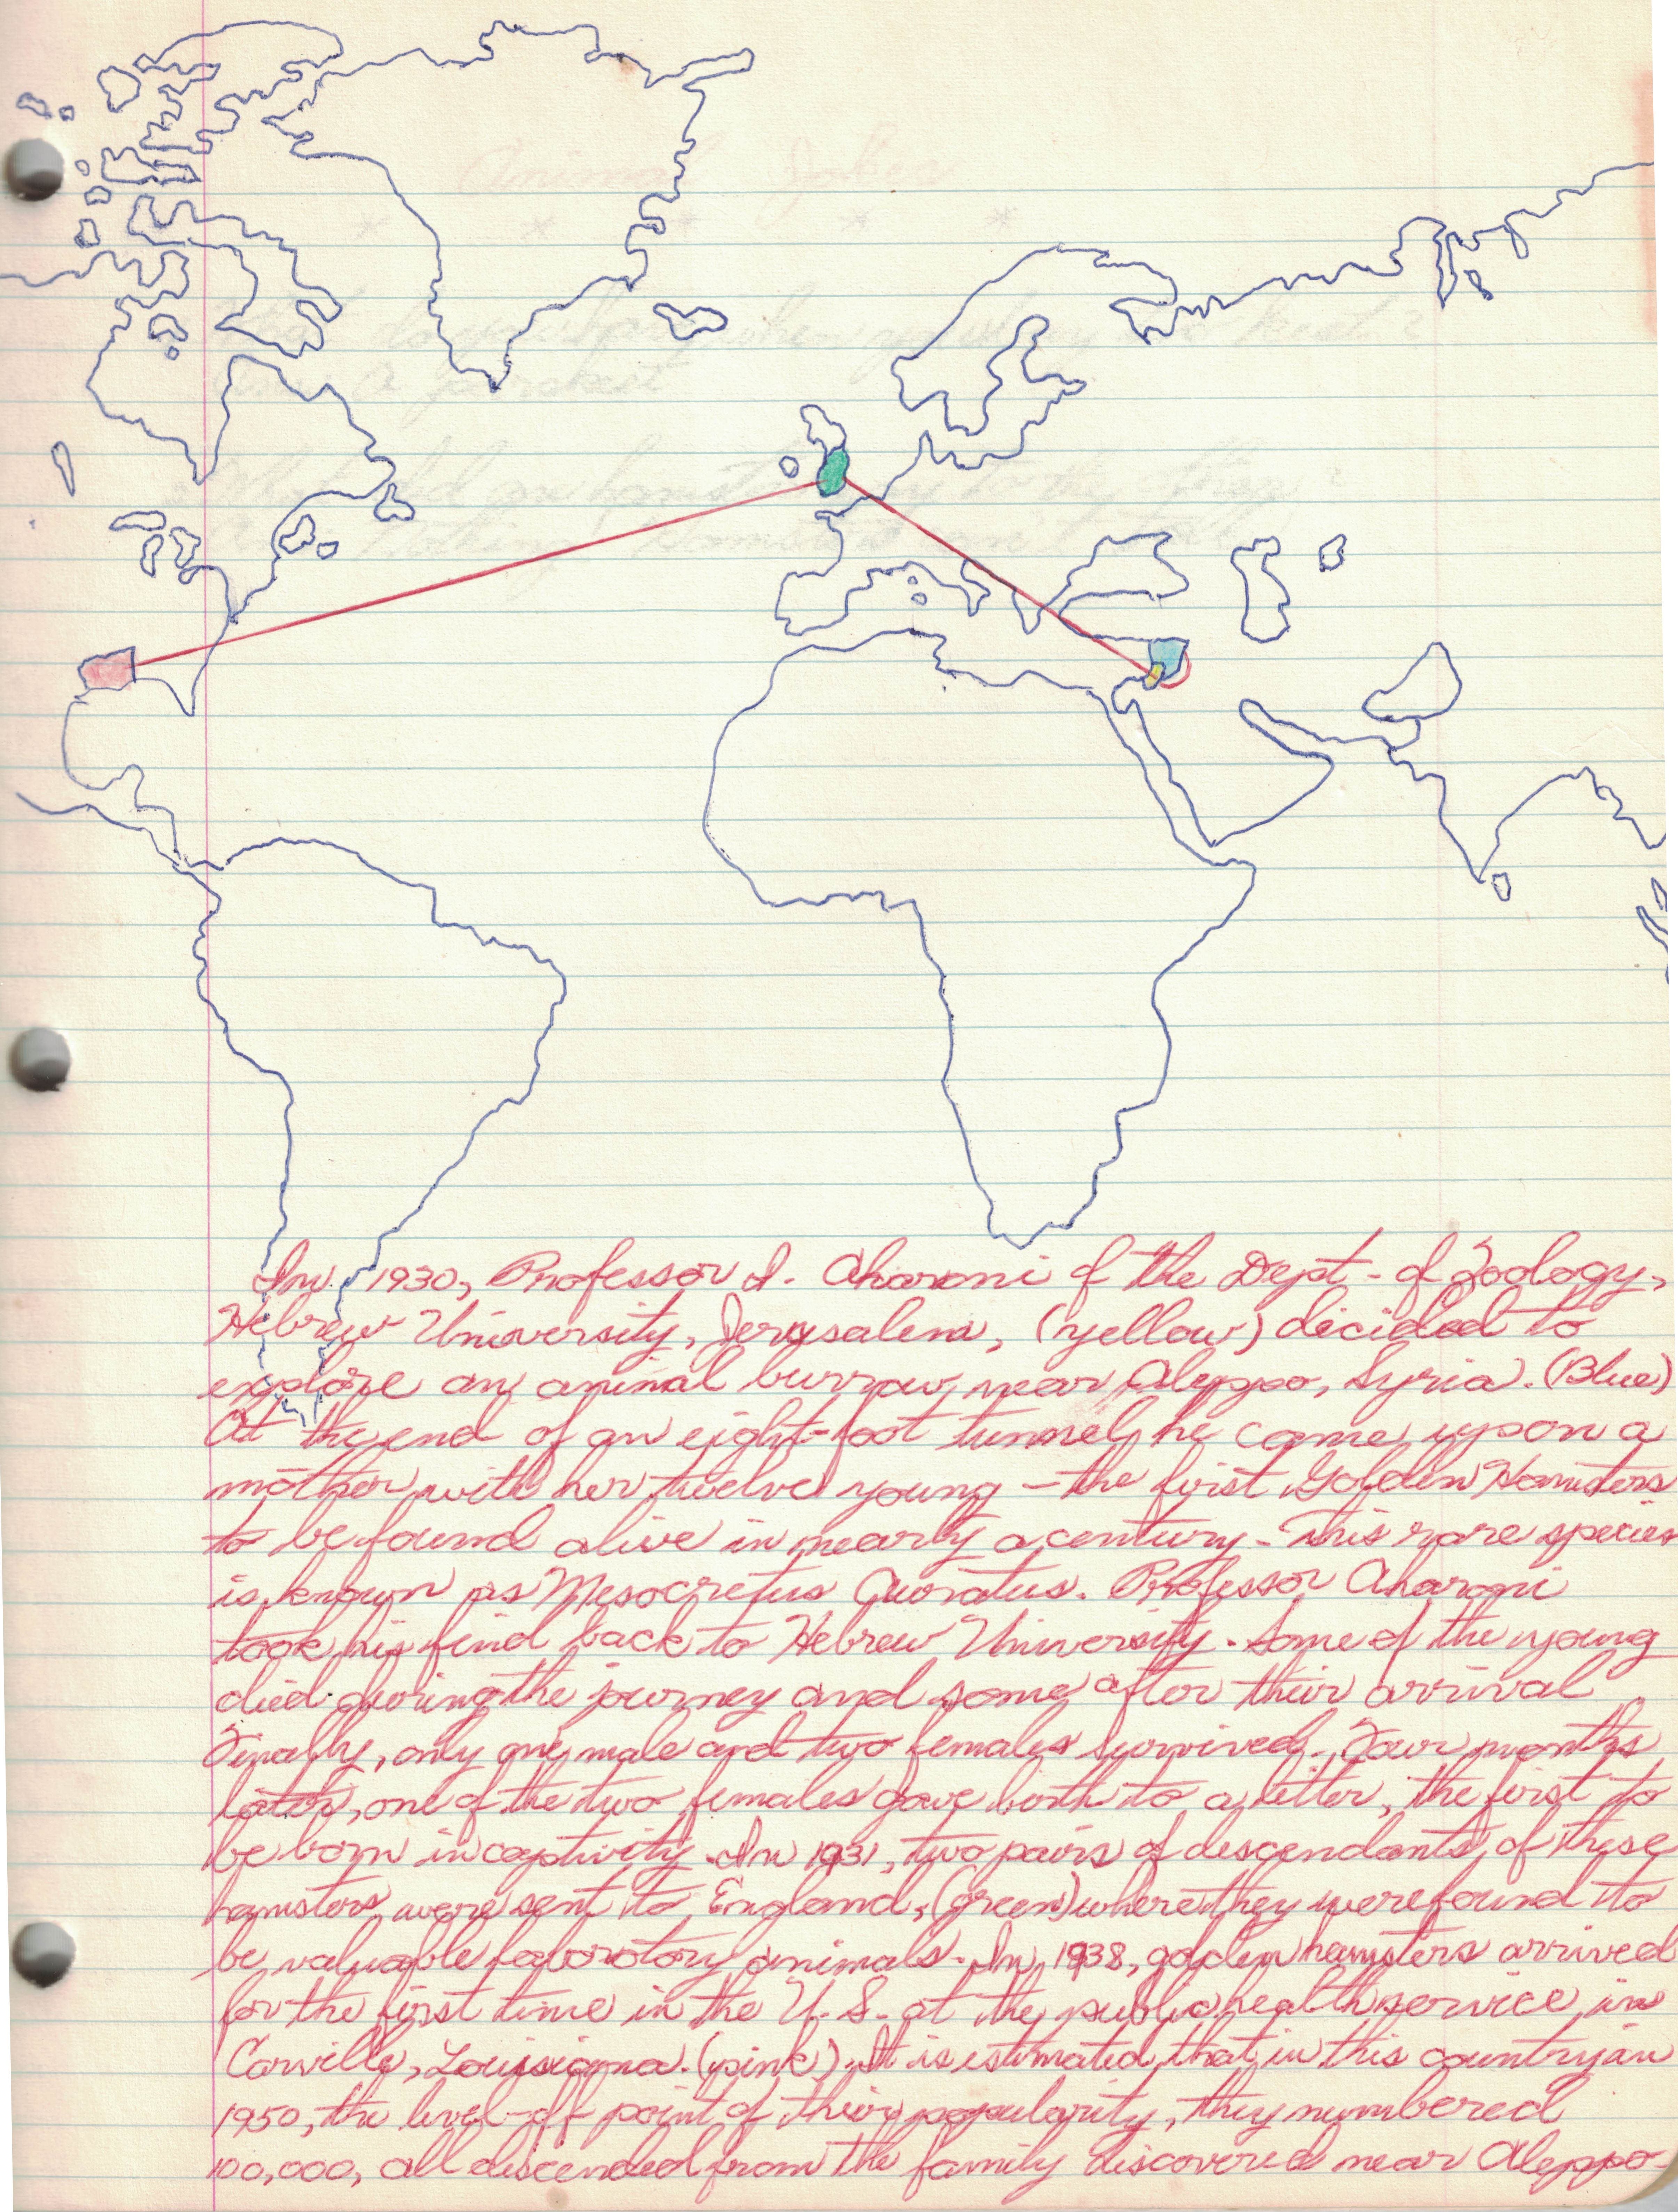 In 1930, Professor I. Aharoni of the Dept. of Zoology,
Hebrew University, Jerusalem, (yellow) decided to
explore an animal burrow near Aleppo, Syria. (Blue)
At the end of an eight-foot tunnel he came upon a
mother with her twelve young - the first Golden Hamsters
to be found alive in nearly a century. This rare species
is known as Mesocretus Auratus. Professor Aharoni
took his find back to Hebrew University. Some of the young
died during the journey and some after their arrival
Finally, only one male and two females survived. Four months
later, one of the two females gave birth to a litter, the first to
be born in captivity. In 1931, two pairs of descendants of these
hamsters were sent to England, (green) where they were found to
be valuable laboratory animals. In 1938, golden hamsters arrived
for the first time in the U.S. at the public health service in
Carville, Louisiana. (pink) It is estimated that in this country in
1950, the level-off point of their popularity, they numbered
100,000, all descended from the family discovered near Aleppo.